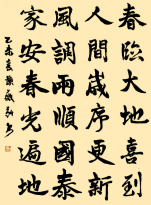 春臨大地喜到
人間歲序更新
風調雨順國泰
家安春光遍地
乙未春